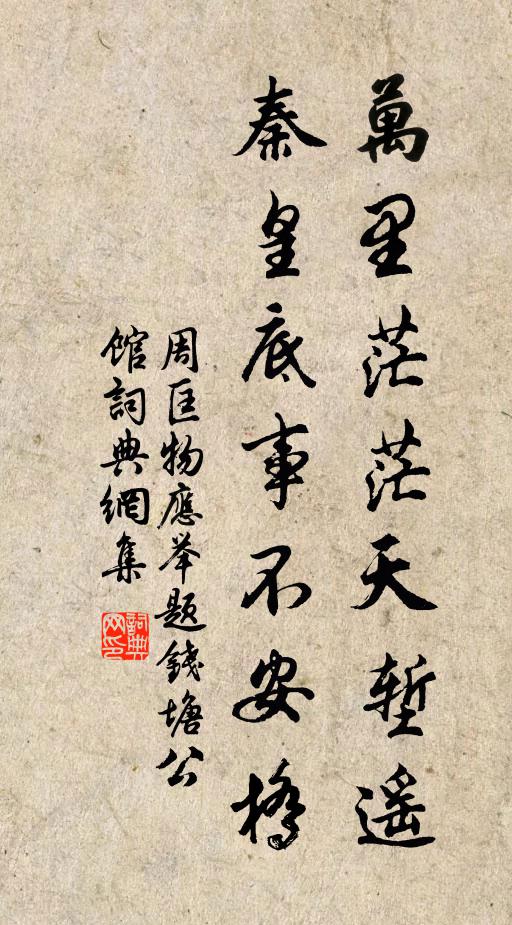 萬里茫茫天塹遥
秦皇底事不安橋
周匡物應举題錢塘公
館詞典網集
詞典
网印